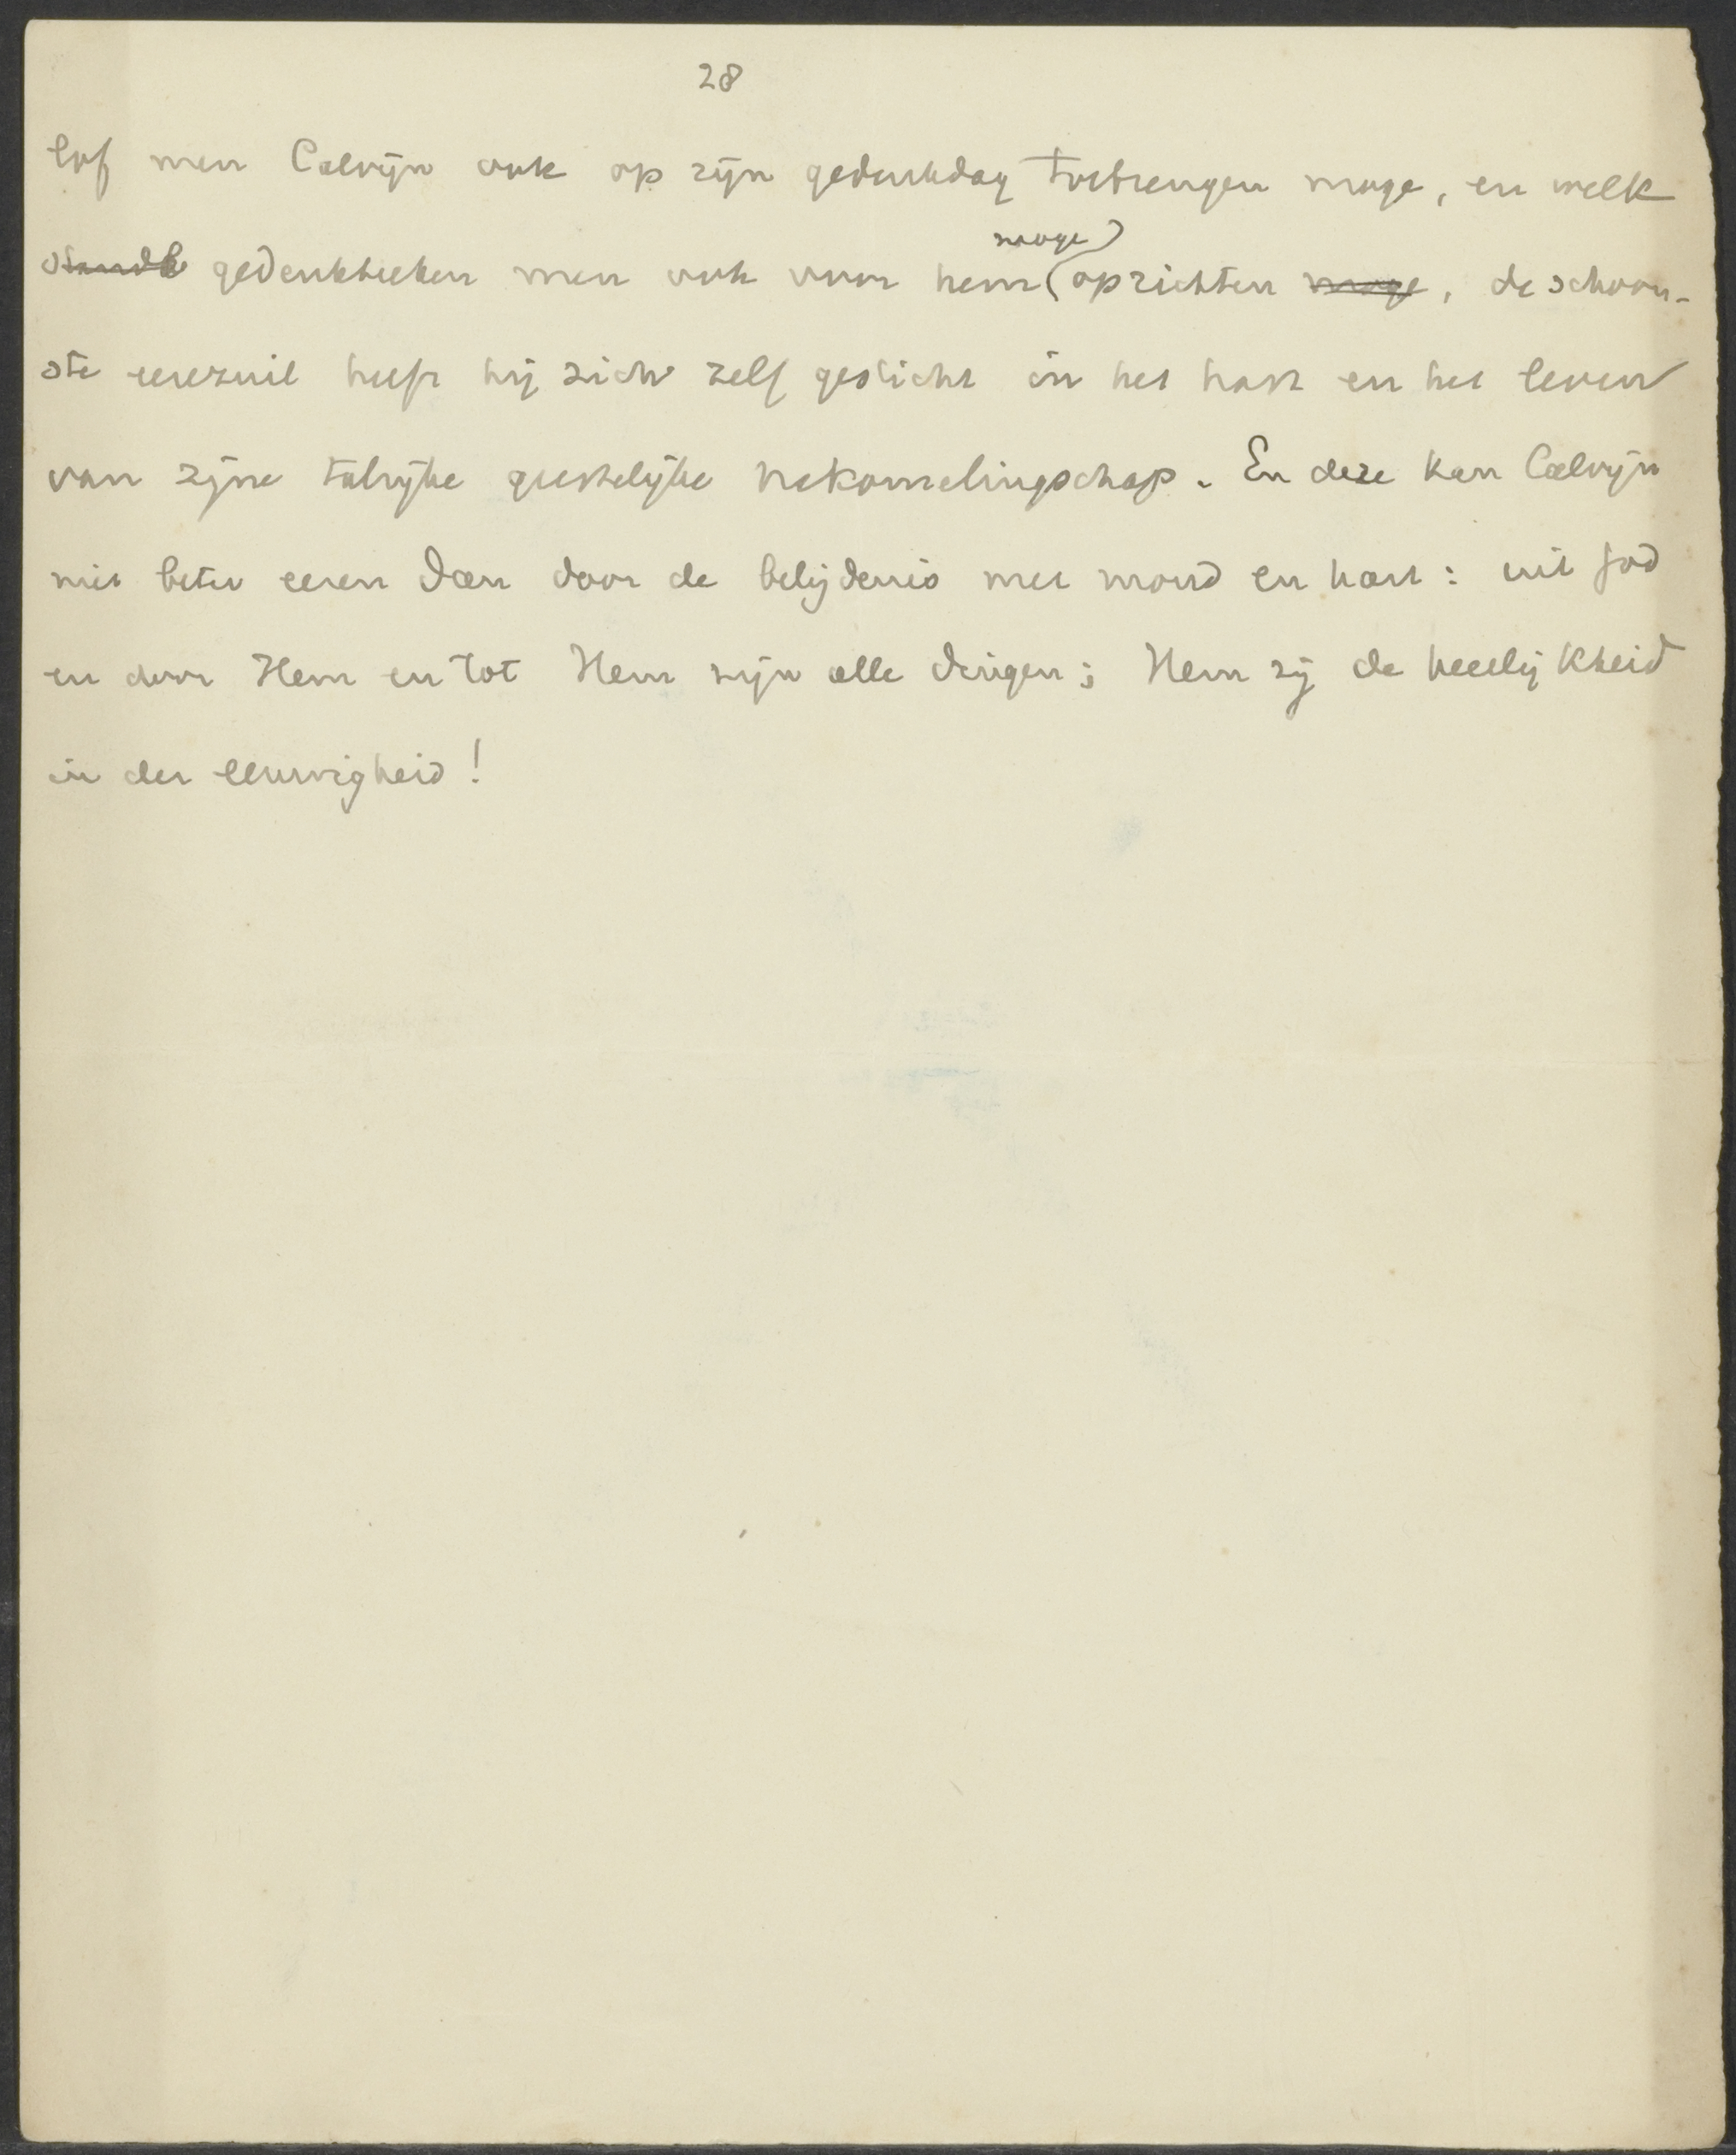 28
lof men Calvijn ook op zijn gedenkdag toebrengen moge, en welk
gedenkteeken men ook voor hem moge oprichten ~~moge~~, de schoon-
ste eerezuil heeft hij zich zelf gesticht in het hart en het leven
van zijne talrijke geestelijke nakomelingschap. En deze kan Calvijn
niet beter eeren dan door de belijdenis met mond en hart: uit God
en door Hem en tot Hem zijn alle dingen; Hem zij de heerlijkheid
in der eeuwigheid!